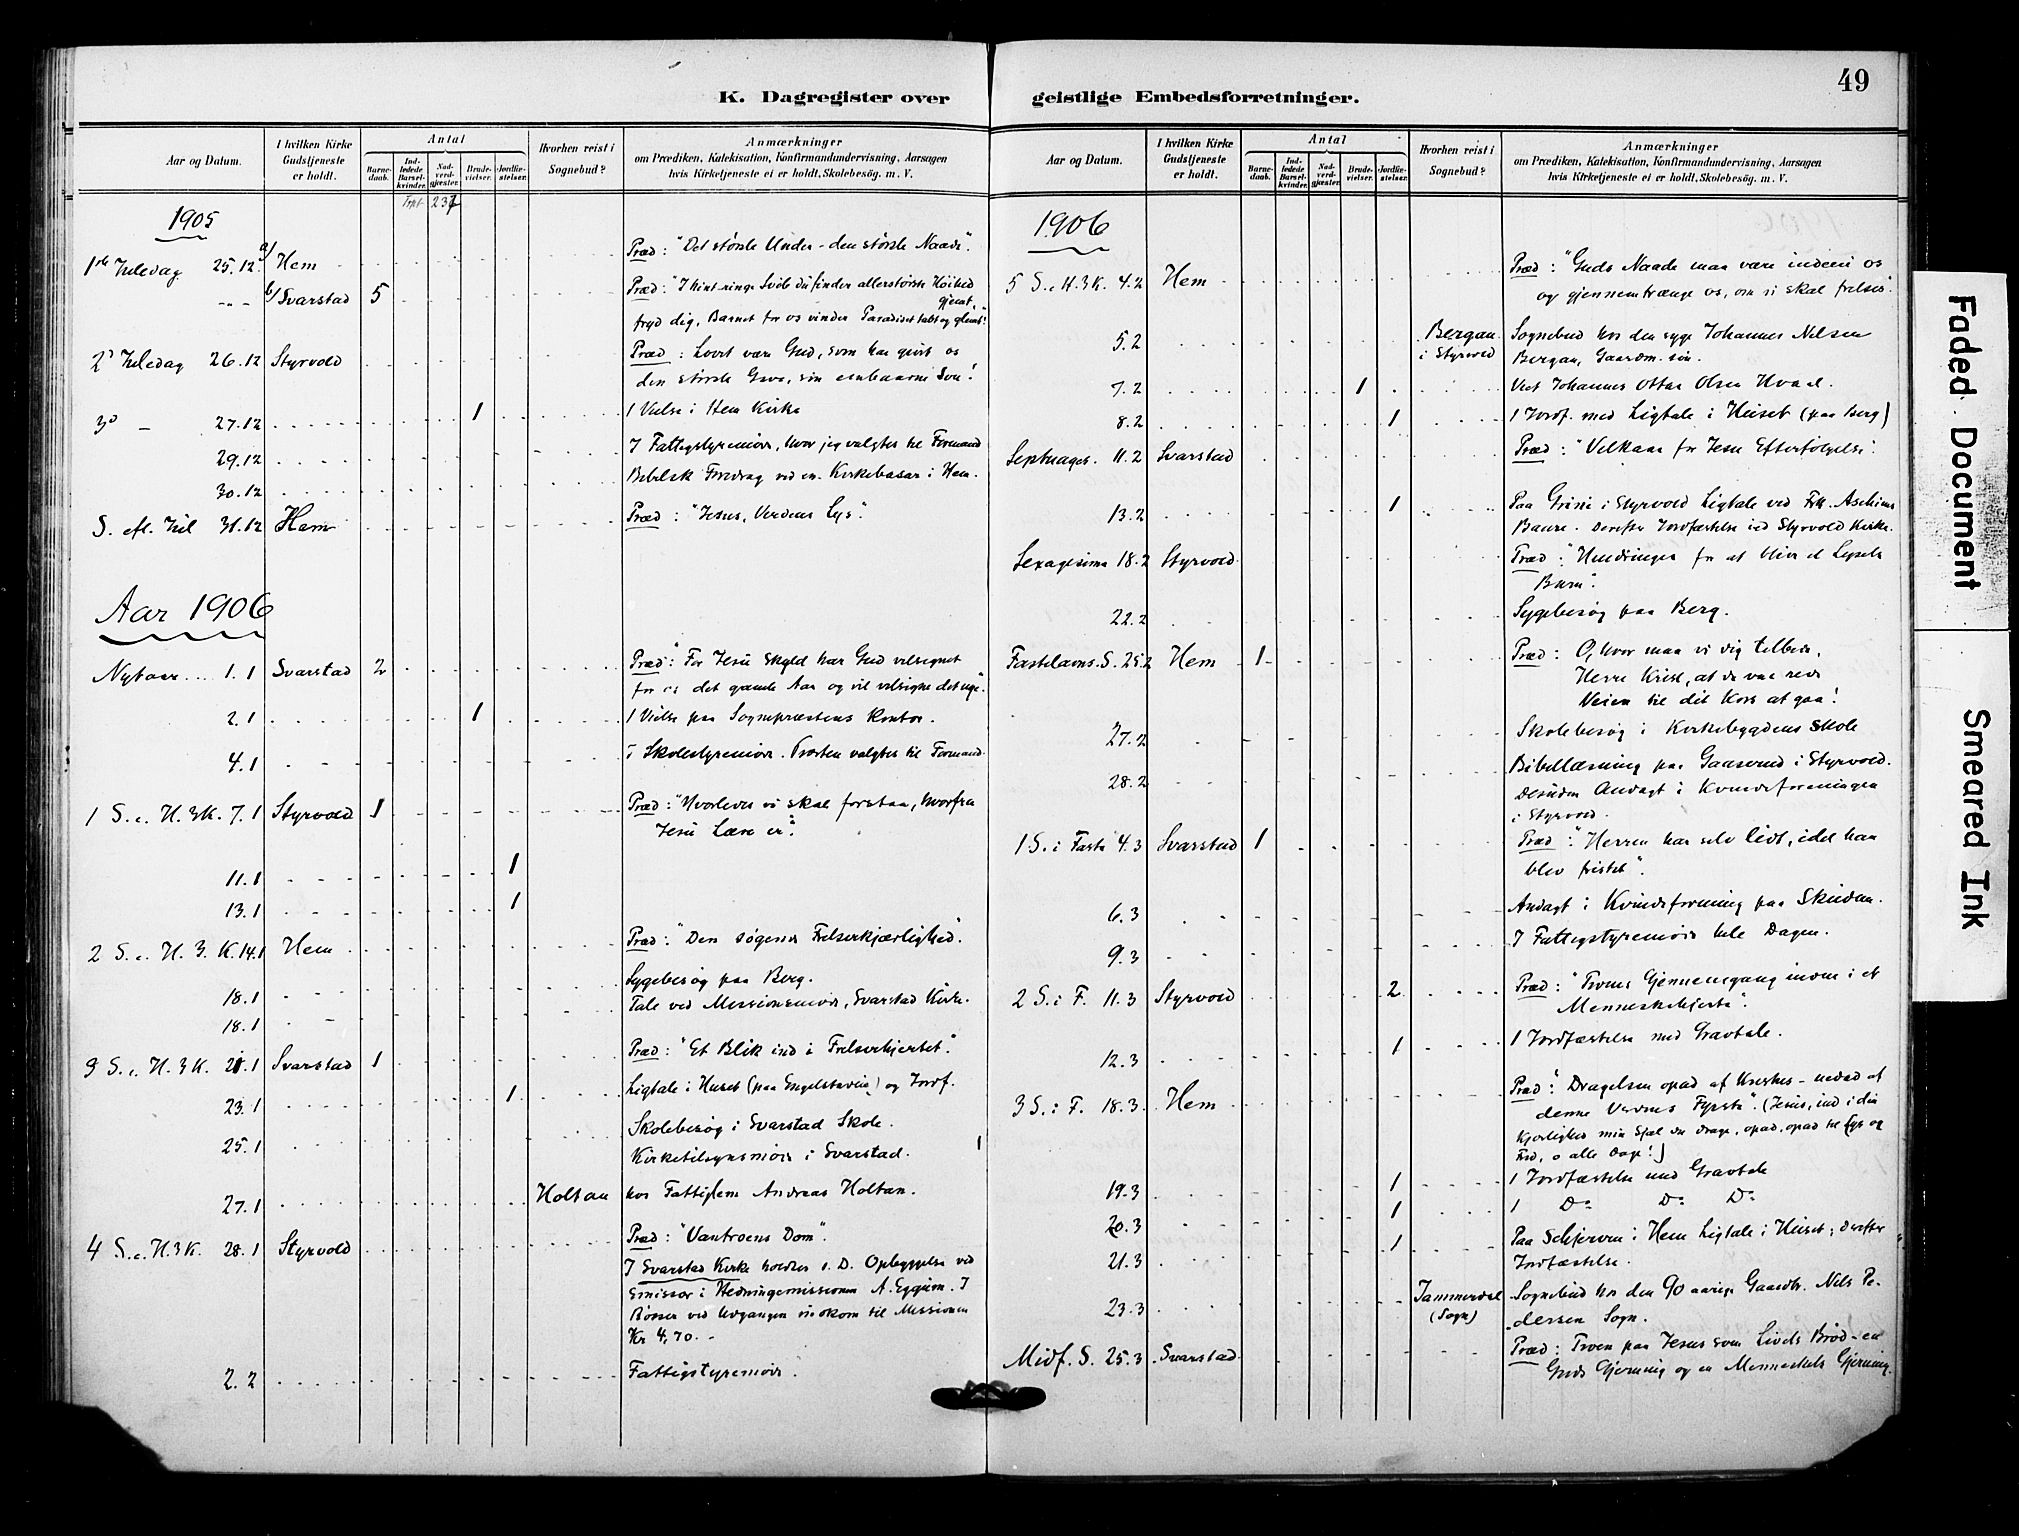 K. Dagregister over geistlige Embedsforretninger.
49
Aar og Datum.
I hvilken Kirke Gudstjeneste er holdt.
Antal
Barne-daab.
Ind-ledede Barsel-kvinder.
Nad-verd-gjæster.
Brude-vielser.
Jordfæ-stelser.
Hvorhen reist i Sognebud?
Anmærkninger
om Prædiken, Katekisation, Konfirmandundervisning, Aarsagen
hvis Kirketjeneste ei er holdt, Skolebesög. m. V.
1905
1ste Juledag 25.12 a/ Hem Præd: "Det største Under - den største Naade".
b/ Svarstad 5 Præd: "I hint ringe Svøb du finder allerstørste Høihed gjemt,
fryd dig, Barnet for os vinder Paradiset tabt og glemt!"
2' Juledag 26.12 Styrvold Præd: Lovet være Gud, som har givet os
den største Gave, sin enbaarne Søn!
3d - 27.12 1 1 Vielse i Hem Kirke
29.12 I Fattigstyremøde, hvor jeg valgtes til Formand
30.12 Bibelsk Foredrag ved en Kirkebasar i Hem.
S. eft. Jul 31.12 Hem Præd: "Jesus, Verdens Lys".
Aar 1906
Nytaar 1.1 Svarstad 2 Præd: "For Jesu Skyld har Gud velsignet
for os det gamle Aar og vil velsigne det nye".
2.1 1 1 Vielse paa Sognepræstens Kontor.
4.1 I Skolestyremøde. Præsten valgtes til Formand.
1 S. e. H. 3 K. 7.1 Styrvold 1 Præd: "Hvorledes vi skal forstaa, hvorfra
Jesu Lære er".
11.1 1
13.1 1
2 S. e. H. 3. K. 14.1 Hem Præd: "Den søgende Frelserkjærlighed".
18.1 Sygebesøg paa Berg.
18.1 Tale ved Missionsmøde, Svarstad Kirke.
3 S. e. H. 3 K. 21.1 Svarstad 1 Præd: "Et Blik ind i Frelserhjertet".
23.1 1 Ligtale i Huset (paa ) og Jordf.
25.1 Skolebesøg i Svarstad Skole.
Kirketilsynsmøde i Svarstad.
27.1 Holtan hos Fattiglem Andreas Holtan.
4 S. e. H. 3 K. 28.1 Styrvold Præd: "Vantroens Dom".
I Svarstad Kirke holdtes s. D. Opbyggelse ved
Emissær i Hedningemissionen A. Eggum. I
Bøsser ved Udgangen indkom til Missionen
Kr 4,70.-
2.2 Fattigstyremøde.
Aar og Datum.
I hvilken Kirke Gudstjeneste er holdt.
Antal
Barne-daab.
Ind-ledede Barsel-kvinder.
Nad-verd-gjæster.
Brude-vielser.
Jordfæ-stelser.
Hvorhen reist i Sognebud?
Anmærkninger
om Prædiken, Katekisation, Konfirmandundervisning, Aarsagen
hvis Kirketjeneste ei er holdt, Skolebesøg. m. V.
1906
5 S. e. H. 3 K. 4.2 Hem Præd: "Guds Naade maa være inderi os
og gjennemtrænge os, om vi skal frelses".
5.2 Bergan i Styrvold Sognebud hos den syge Johannes Nilsen
Bergan, Gaardm. søn.
7.2 1 Viet Johannes Ottar Olsen Hvaal.
8.2 1 1 Jordf. med Ligtale i Huset (paa Berg)
Septuages. 11.2 Svarstad Præd: "Vilkaar for Jesu Efterfølgelse".
13.2 1 Paa i Styrvold Ligtale ved
Derefter Jordfæstelse ved Styrvold Kirke.
Sexagesima 18.2 Styrvold Præd: "Hindringer for at blive et Lysets
Barn".
22.2 Sygebesøg paa Berg.
Fastelavns. S. 25.2 Hem 1 Præd: O, hvor maa vi dig tilbede,
Herre Krist, at du var rede
Veien til dit Kors at gaa!
27.2 Skolebesøg i Kirkebygdens Skole
28.2 Bibellæsning paa Gaaserud i Styrvold.
Desuden Andagt i Kvindeforeningen
i Styrvold.
1 S. i Faste 4.3 Svarstad 1 Præd: "Herren har selv lidt, idet han
blev fristet".
6.3 Andagt i Kvindeforening paa Skindan.
9.3 I Fattigstyremøde hele Dagen.
2 S. i F. 11.3 Styrvold 2 Præd: "Troens Gjennemgang inde i et
Menneskehjerte".
12.3 1 1 Jordfæstelse med Gravtale.
3 S. i F. 18.3 Hem Præd: "Dragelsen opad af Kristus - nedad af
denne Verdens Fyrste". (Jesus, ind i din
Kjærlighed min Sjæl du drage, opad, opad til Lys og
Fred, o alle Dage!)
19.3 1 1 Jordfæstelse med Gravtale
20.3 1 1 Do Do Do
21.3 1 Paa Schjerven i Hem Ligtale i Huset; derefter
Jordfæstelse.
23.3 Tammerdal (Sogn) Sognebud hos den 90 aarige Gaardbr. Nils Pe-
dersen Sogn.
Midf. S. 25.3 Svarstad Præd: Troen paa Jesus som Livets Brød - en
Guds Gjerning og en Menneskets Gjerning.
Faded Document
Smeared Ink